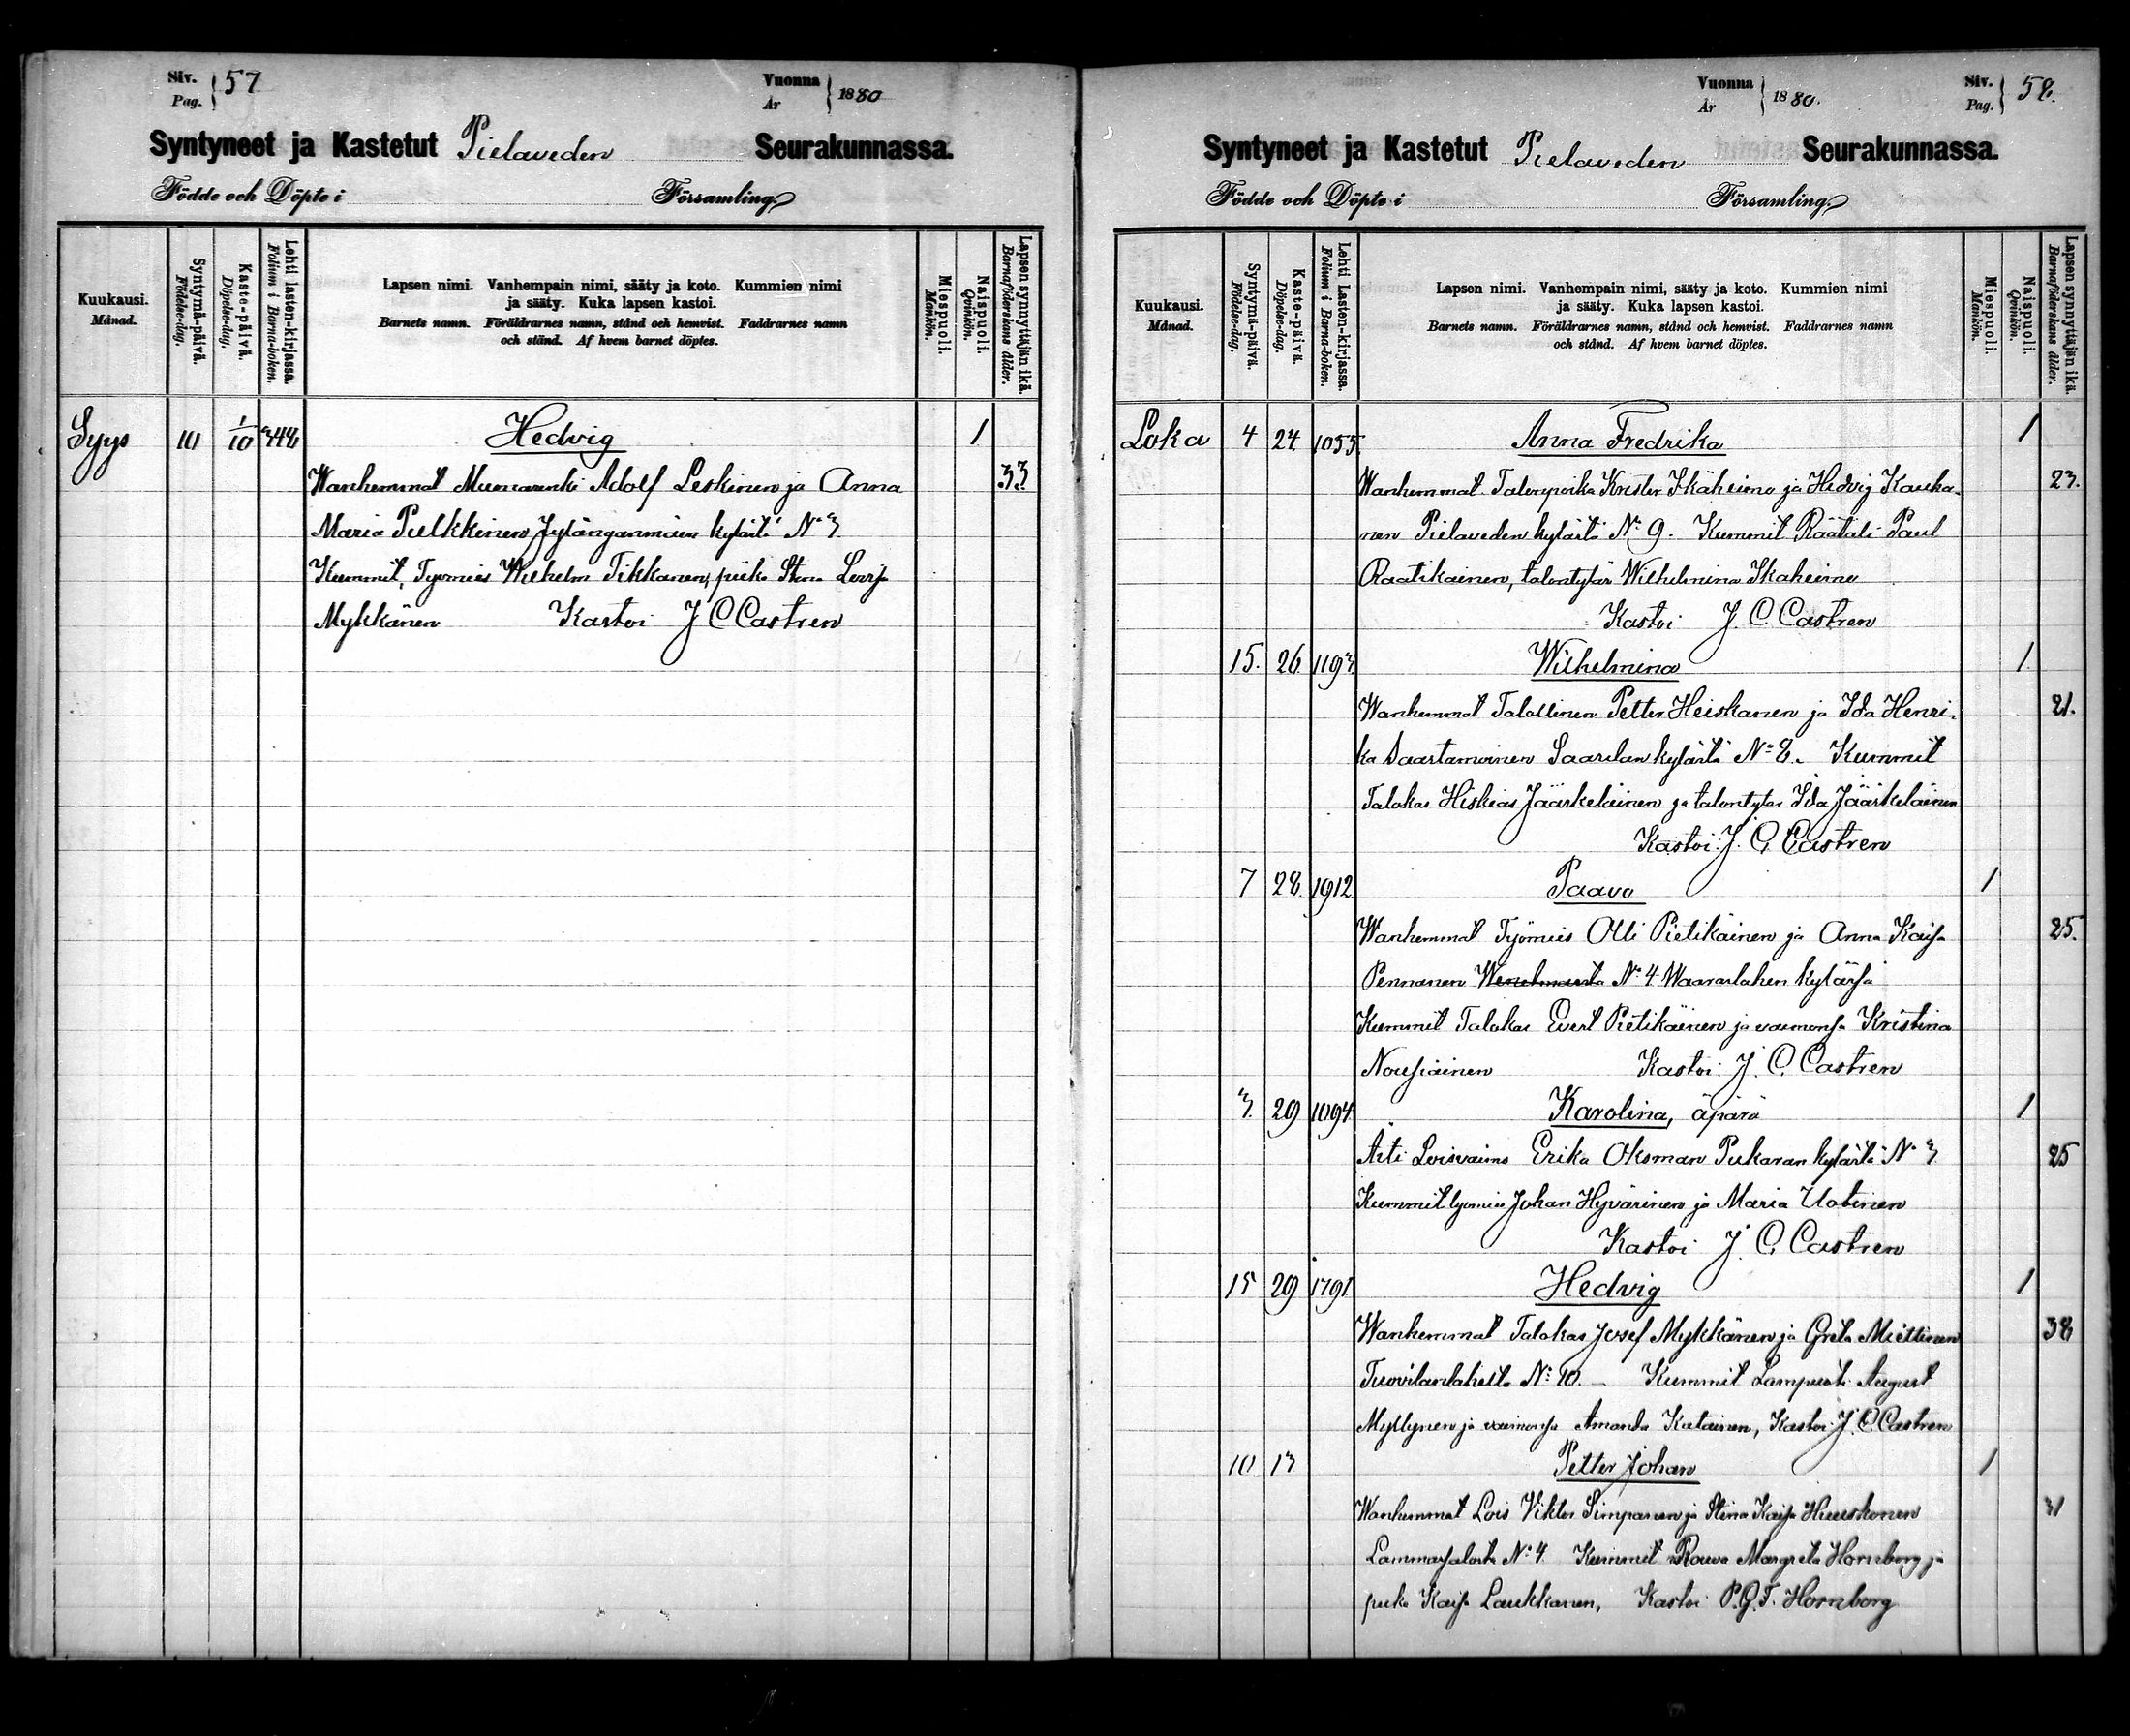 Siv. Pag. } 57
Vuonna År } 1880
Syntyneet ja Kastetut Pielaveden Seurakunnassa.
Födde och Döpte i Församling.
Kuukausi. Månad.
Syntymä-päivä. Födelse-dag.
Kaste-päivä. Döpelse-dag.
Lehti lasten-kirjassa. Folium i Barna-boken.
Lapsen nimi. Vanhempain nimi, sääty ja koto. Kummien nimi
ja sääty. Kuka lapsen kastoi.
Barnets namn. Föräldrarnes namn, stånd och hemvist. Faddrarnes namn
och stånd. Af hvem barnet döptes.
Miespuoli. Mankön.
Naispuoli. Qvinkön.
Lapsen synnyttäjän ikä. Barnaföderskans ålder.
Syys 10 1/10 348 Hedvig 1
Wanhemmat Muurarinki Adolf Leskinen ja Anna 33
Maria Pulkkinen Jylänganmäen kylästä No 3
Kummit, Tyomies Wilhelm Tikkanen, piika Stina Lovisa
Mykkänen Kastoi J C Castren
Siv. Pag. } 58.
Vuonna År } 1880.
Syntyneet ja Kastetut Pielaveden Seurakunnassa.
Födde och Döpte i Församling.
Kuukausi. Månad.
Syntymä-päivä. Födelse-dag.
Kaste-päivä. Döpelse-dag.
Lehti Lasten-kirjassa. Folium i Barna-boken.
Lapsen nimi. Vanhempain nimi, sääty ja koto. Kummien nimi
ja sääty. Kuka lapsen kastoi.
Barnets namn. Föräldrarnes namn, stånd och hemvist. Faddrarnes namn
och stånd. Af hvem barnet döptes.
Miespuoli. Mankön.
Naispuoli. Qvinkön.
Lapsen synnyttäjän ikä. Barnaföderskans ålder.
Loka 4 24. 1055. Anna Fredrika 1
Wanhemmat Talonpoika Krister Ikäheimo ja Hedvig Kauka- 23.
nen Pielaveden kylästä No 9. Kummit Räätäli Paul
Raatikainen, talontytär Wilhelmina Ikaheimo
Kastoi J. C. Castren
15. 26. 1193. Wilhelmina 1.
Wanhemmat Talollinen Petter Heiskanen ja Ida Henri- 21.
ka Saastamoinen Saarelan kylästä No 8. Kummit
Talokas Hiskias Jääskeläinen ja talontytar Ida Jääskeläinen
Kastoi: J. C. Castren
7 28. 1912. Paavo 1
Wanhemmat Työmies Olli Pietikäinen ja Anna Kaisa 25.
Pennanen No 4 Waaraslahen kylässä
Kummit Talokas Evert Pietikäinen ja vaimonsa Kristina
Nousiainen Kastoi: J. C. Castren
3. 29 1094. Karolina, äpärä 1
Äiti Loisvaimo Erika Oksman Pukaran kylästä No 3 25
Kummit tyomies Johan Hyvärinen ja Maria Uotinen
Kastoi J. C. Castren
15 29 1791. Hedvig 1
Wanhemmat Talokas Josef Mykkänen ja Greta Miettinen 38
Tuovilanlahelta No 10. Kummit Lampuoti August
Myllynen ja vaimonsa Amanda Kutainen, Kastoi J. C. Castren
10 13 Petter Johan 1
Wanhemmat Lois Viktor Simpanen ja Stina Kaisa Huuskonen 31
Lammassalosta No 4. Kummit Rouva Margreta Hornborg ja
piika Kaisa Laukkanen, Kastoi P. G. T. Hornborg